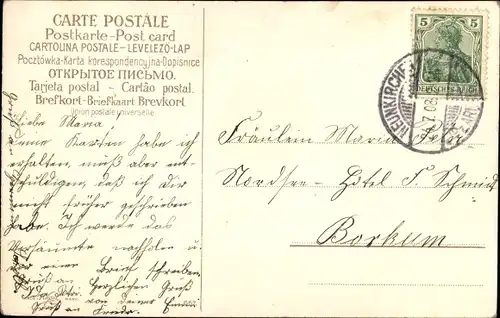 CARTE POSTALE
Postkarte-Post card
CARTOLINA POSTALE-LEVELEZŐ-LAP
Pocztówka-Karta korespondencyjna-Dopisnice
ОТКРЫТОЕ ПИСЬМО.
Tarjeta postal - Cartão postal.
Brefkort-Briefkaart Brevkort.
Union postale universelle.
5 5
DEUTSCHES REICH
NEUNKIRCHEN
7 08
Liebe Mama!
Deine Karten habe ich
erhalten, muß aber ent-
schuldigen, daß ich Dir
nicht früher geschrieben
habe. Ich werde das
Versäumte nachholen u.
Dir einen Brief schreiben.
Herzlichen Gruß
von deiner
Gruß an
Fräulein Maria
Nordsee-Hôtel F. Schmid
Borkum